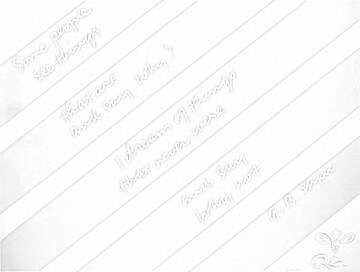 Some people
see things
that are
and say "Why?"
I dream of things
that never were
and say
Why not
G. B. Shaw